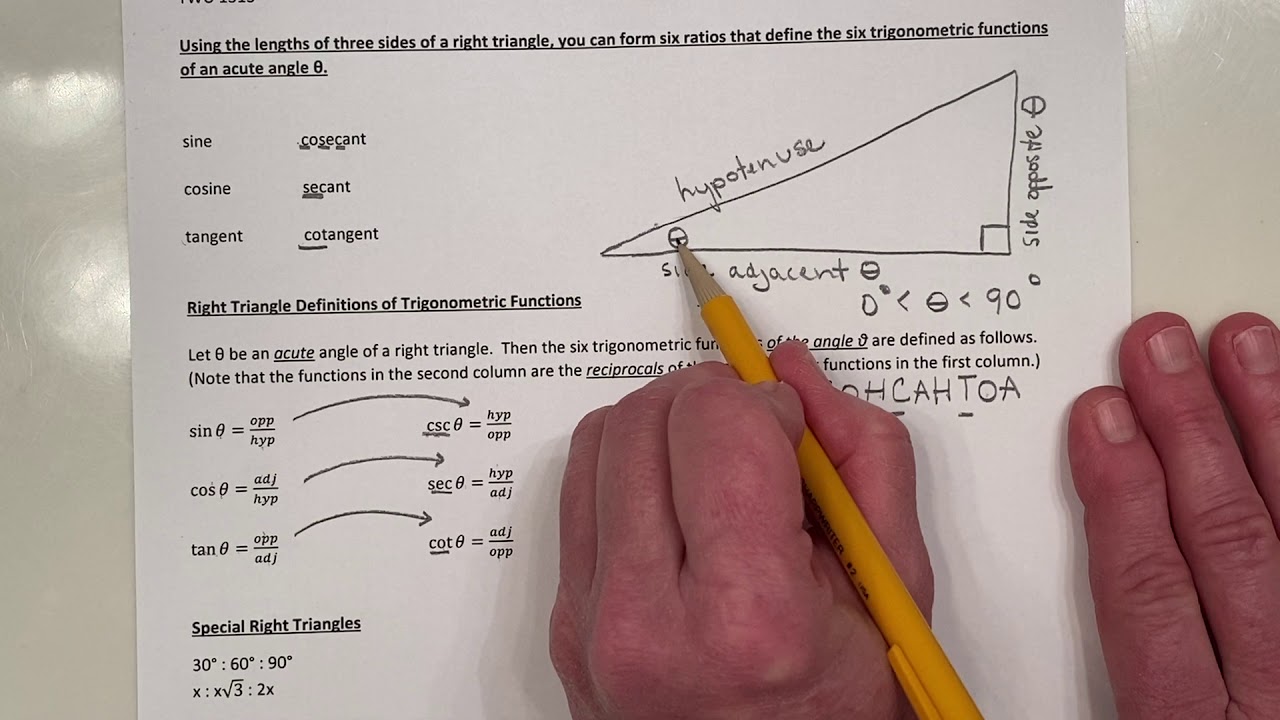 Using the lengths of three sides of a right triangle, you can form six ratios that define the six trigonometric functions
of an acute angle θ.
sine cosecant
cosine secant
tangent cotangent
hypotenuse
side opposite θ
θ
adjacent θ
0° < θ < 90°
Right Triangle Definitions of Trigonometric Functions
Let θ be an acute angle of a right triangle. Then the six trigonometric of the angle ϑ are defined as follows.
(Note that the functions in the second column are the reciprocals of functions in the first column.)
OHCAHTOA
sin θ = opp/hyp csc θ = hyp/opp
cos θ = adj/hyp sec θ = hyp/adj
tan θ = opp/adj cot θ = adj/opp
Special Right Triangles
30° : 60° : 90°
x : x√3 : 2x
#2 USA